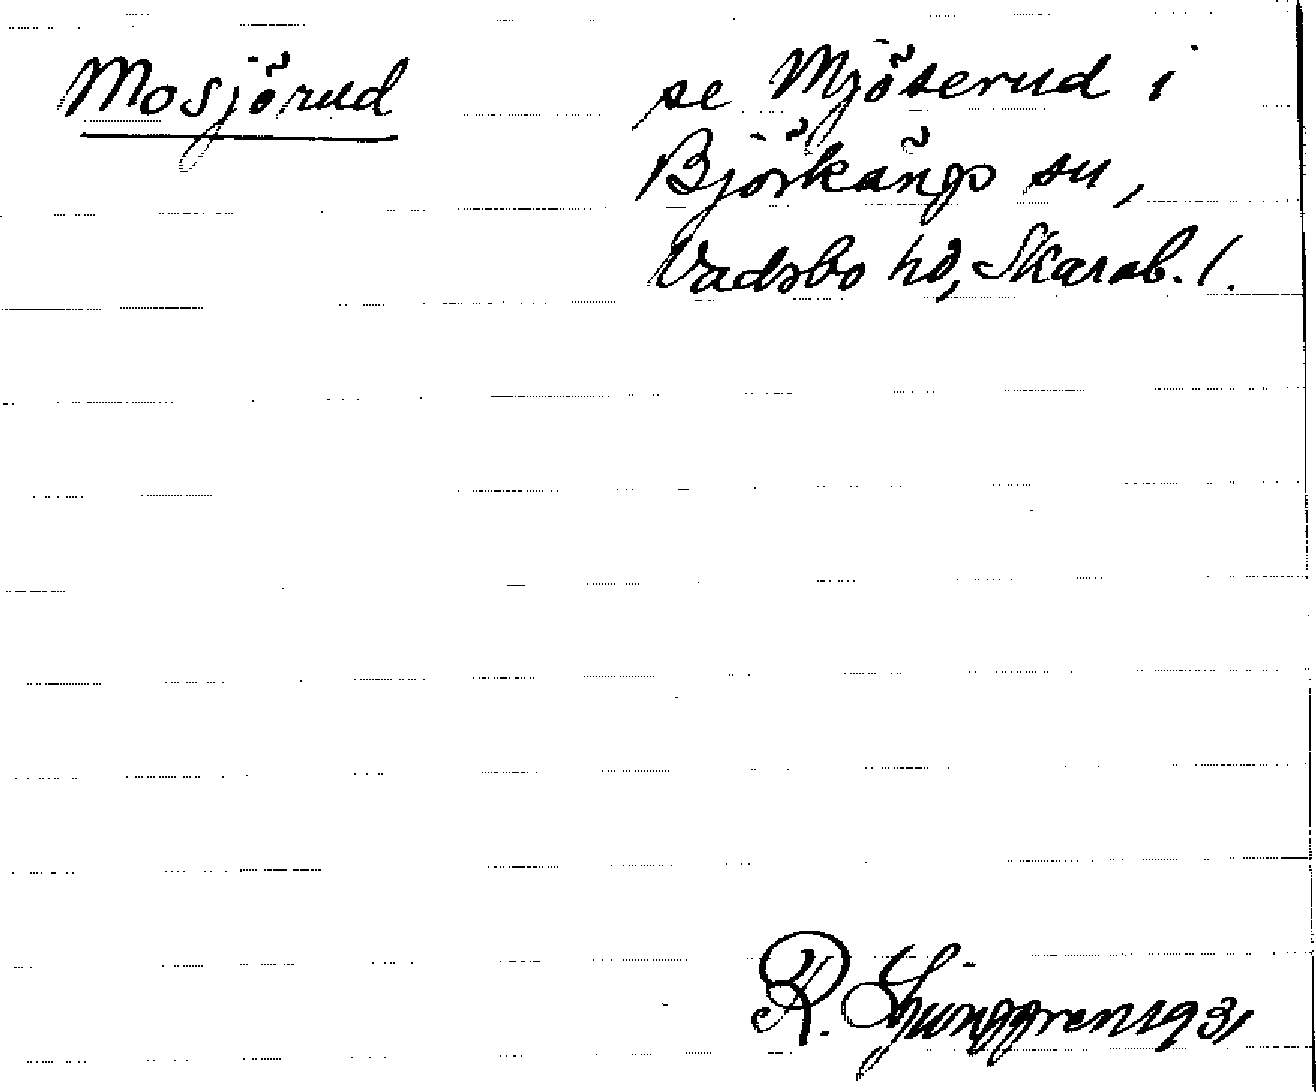 Mosjörud
se Mjöserud i
Björkängs sn,
Vadsbo hd, Skarab. l.
R. Ljunggren 1931